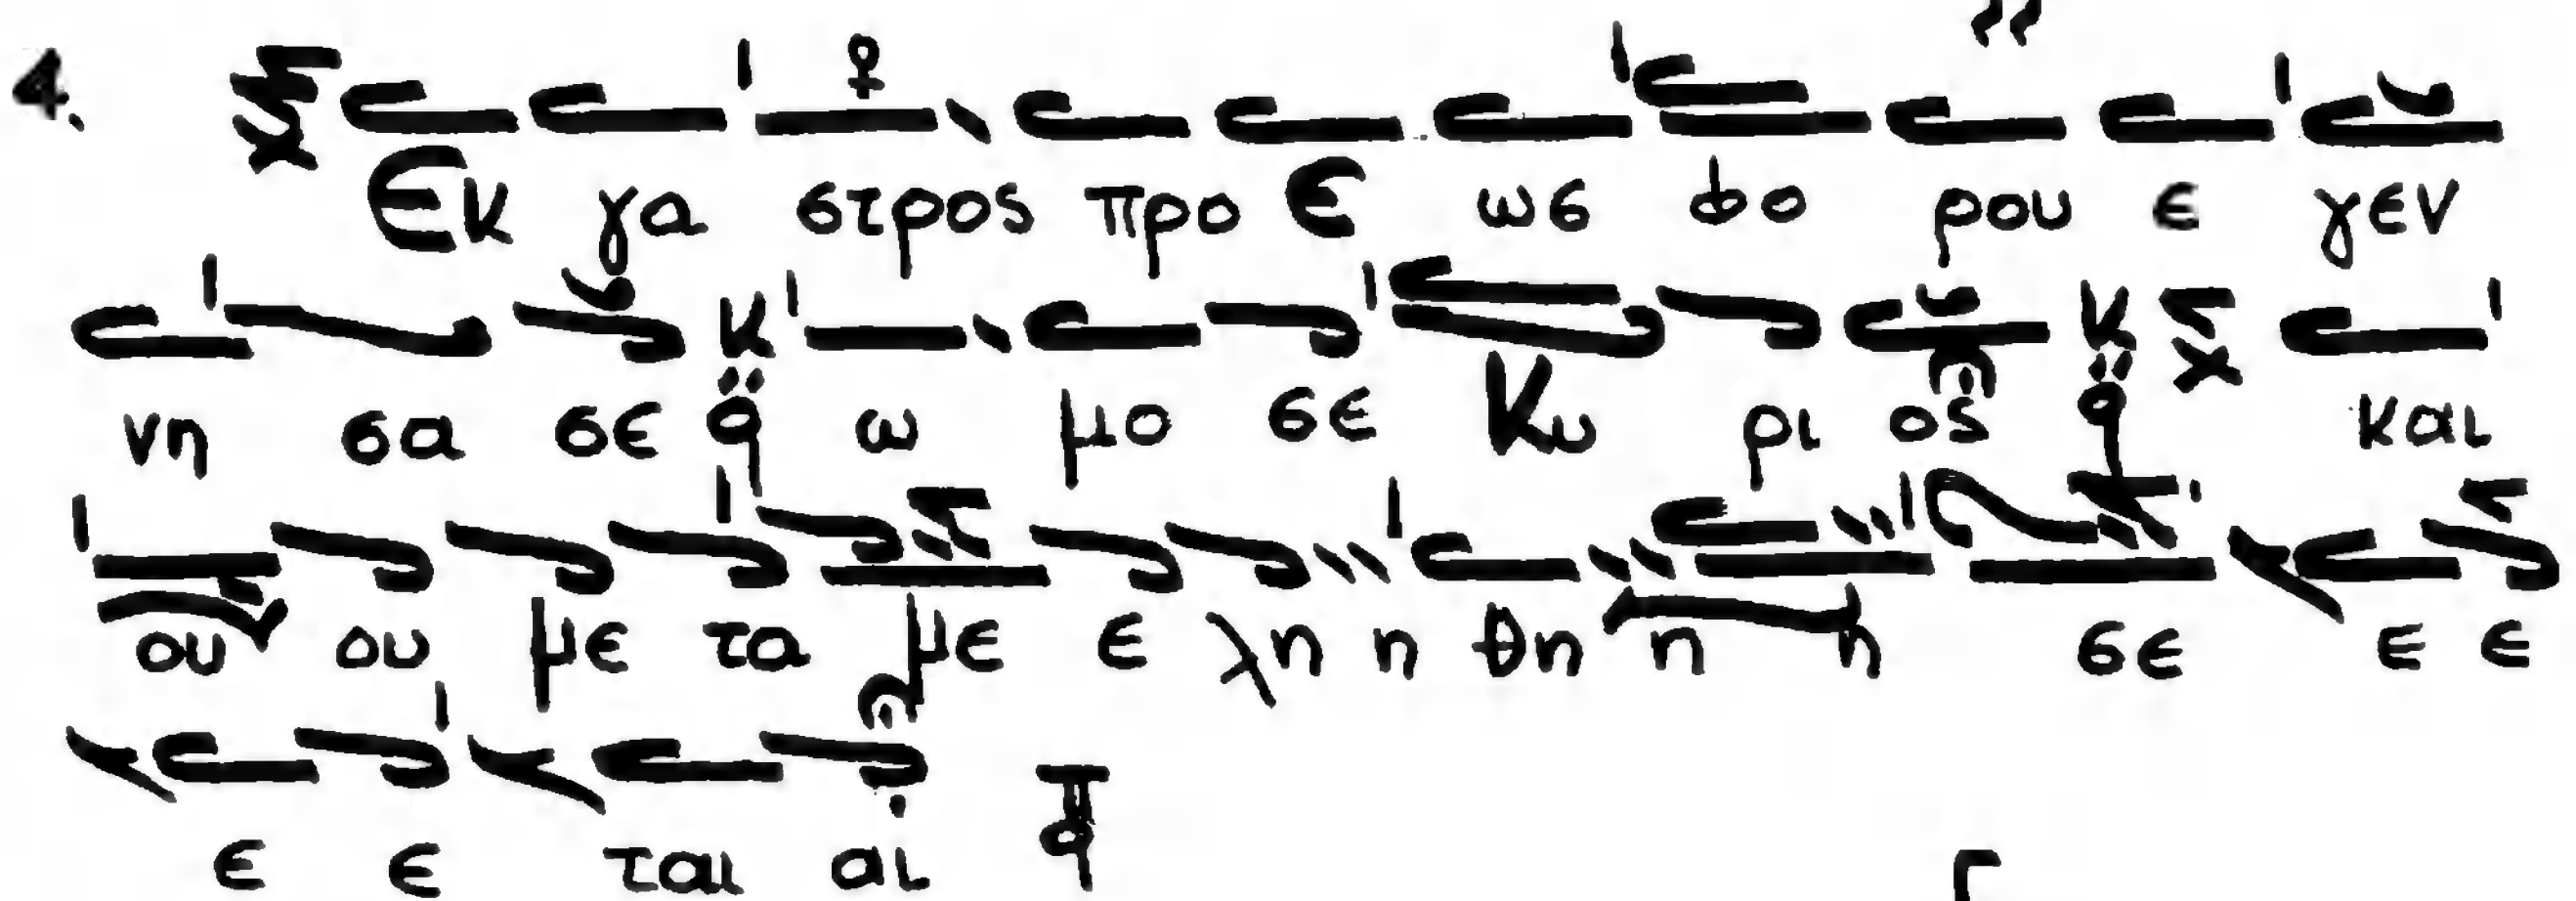 4. Εκ γα στρος προ Ε ωσ φο ρου ε γεν
νη σα σε ω μο σε Κυ ρι ος και
ου ου με τα με ε λη η θη η η σε ε ε
ε ε ται αι